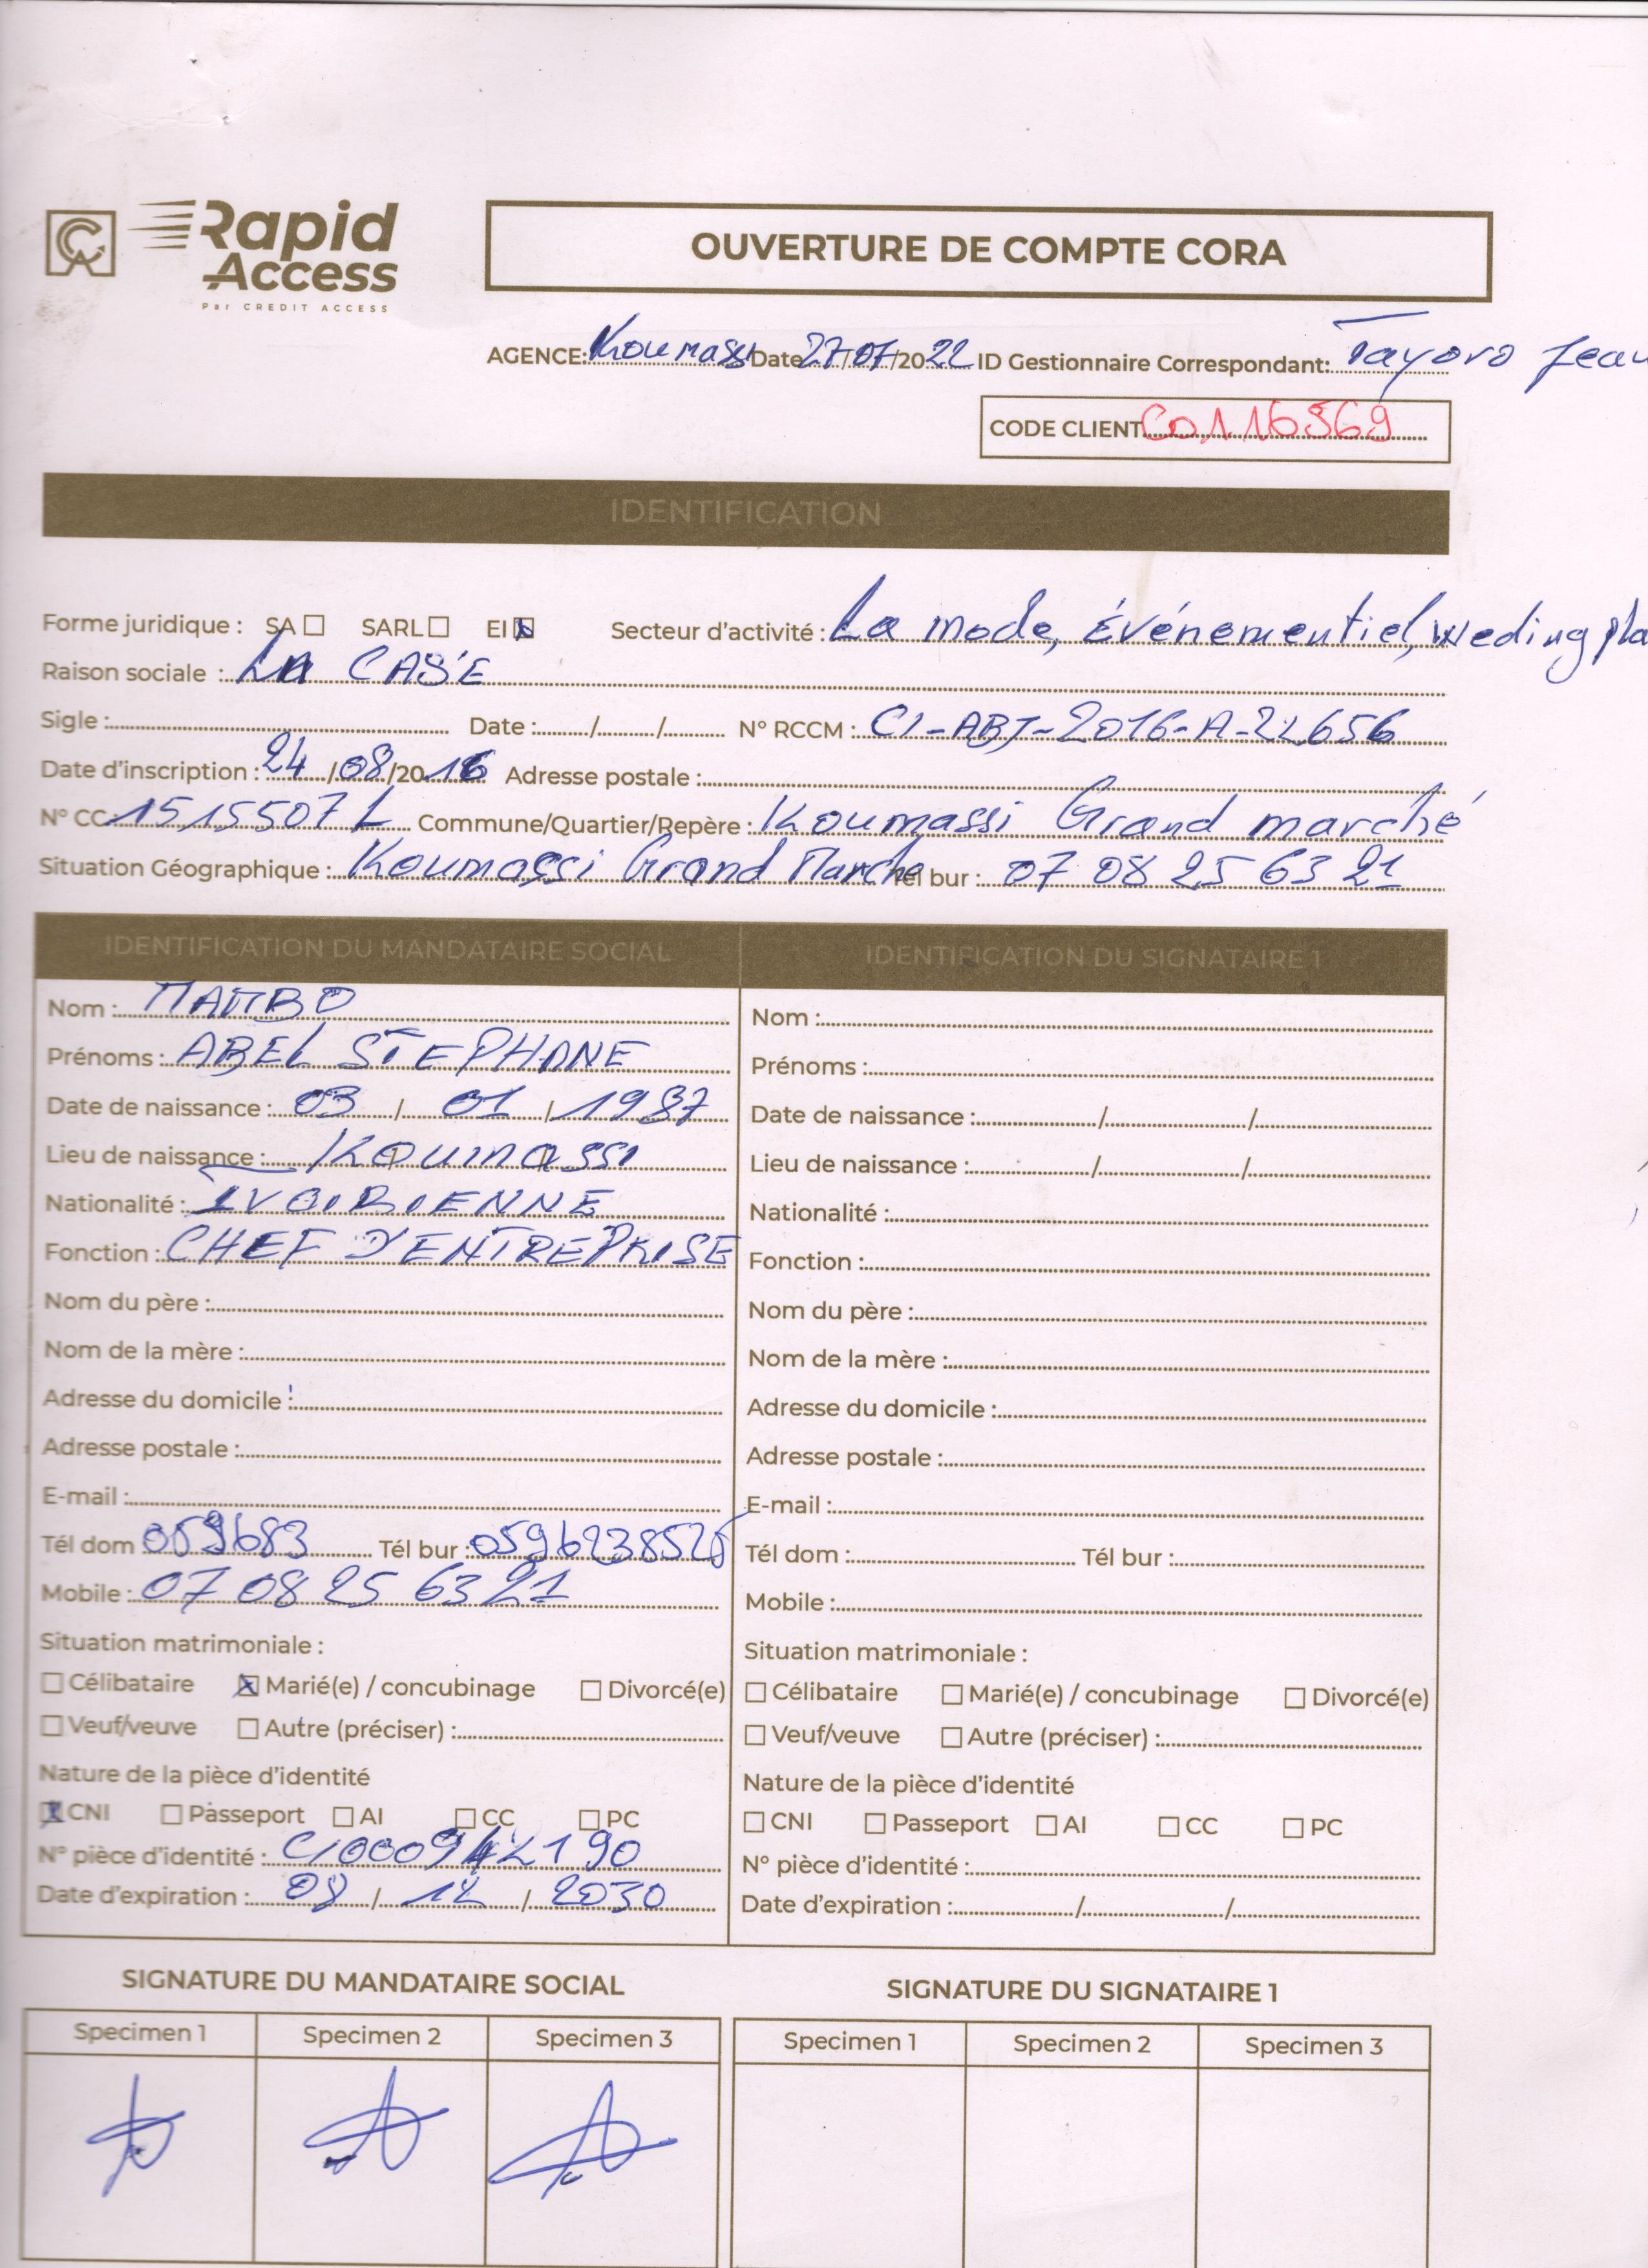 Rapid
Access
Par CREDIT ACCESS
OUVERTURE DE COMPTE CORA
AGENCE: Koumassi Date 27/07/2022 ID Gestionnaire Correspondant: Tayoro Jean
CODE CLIENT C0116569
IDENTIFICATION
Forme juridique : SA SARL EI Secteur d'activité : La mode, Événementiel, weding pla
Raison sociale : LA CASE
Sigle : Date : / / N° RCCM : CI-ABJ-2016-A-22656
Date d'inscription : 24/08/2016 Adresse postale :
N° CC 1515507 L Commune/Quartier/Repère : Koumassi Grand marché
Situation Géographique : Koumassi Grand Marche Tél bur : 07 08 25 63 21
IDENTIFICATION DU MANDATAIRE SOCIAL IDENTIFICATION DU SIGNATAIRE 1
Nom : MAMBO Nom :
Prénoms : ABEL STEPHANE Prénoms :
Date de naissance : 03 / 01 / 1987 Date de naissance : / /
Lieu de naissance : Koumassi Lieu de naissance : / /
Nationalité : IVOIRIENNE Nationalité :
Fonction : CHEF D'ENTREPRISE Fonction :
Nom du père : Nom du père :
Nom de la mère : Nom de la mère :
Adresse du domicile : Adresse du domicile :
Adresse postale : Adresse postale :
E-mail : E-mail :
Tél dom 059683 Tél bur : 0596238525 Tél dom : Tél bur :
Mobile : 07 08 25 63 21 Mobile :
Situation matrimoniale : Situation matrimoniale :
Célibataire Marié(e) / concubinage Divorcé(e) Célibataire Marié(e) / concubinage Divorcé(e)
Veuf/veuve Autre (préciser) : Veuf/veuve Autre (préciser) :
Nature de la pièce d'identité Nature de la pièce d'identité
CNI Passeport AI CC PC CNI Passeport AI CC PC
N° pièce d'identité : N° pièce d'identité :
Date d'expiration : 08 / 12 / 2030 Date d'expiration : / /
SIGNATURE DU MANDATAIRE SOCIAL SIGNATURE DU SIGNATAIRE 1
Specimen 1 Specimen 2 Specimen 3 Specimen 1 Specimen 2 Specimen 3